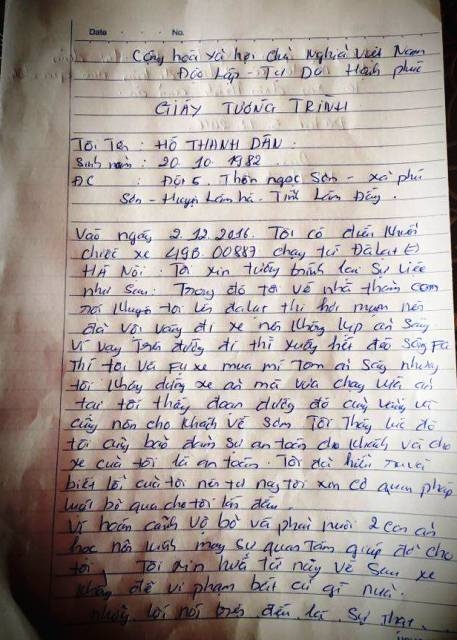 Date No.
Cộng hòa xã hội chủ nghĩa Việt Nam
Độc Lập - Tự Do Hạnh phúc
GIẤY TƯỜNG TRÌNH
Tôi Tên : HỒ THANH DÂN.
Sinh năm : 20.10.1982
ĐC : Đội 5. Thôn ngọc Sơn - xã phú
Sơn - Huyện Lâm hà. Tỉnh Lâm Đồng.
Vào ngày 2.12.2016. Tôi có điều khiển
chiếc xe 49B.00887 chạy từ Đà Lạt
Hà Nội. Tôi xin tường trình lại sự việc
như sau: Trong đó tôi về nhà thăm con
rồi tôi lên đà lạt thì hơi muộn nên
đã vội vàng đi xe nên không kịp ăn sáng
vì vậy trên đường đi thì xuống
thì tôi và Fụ xe mua mì tôm ăn sáng nhưng
tôi không dừng xe ăn mà vừa chạy vừa ăn
tại tôi thấy đoạn đường đó cũng vắng và
cũng nôn cho khách về sớm. Tôi thấy lúc đó
tôi cũng bảo đảm sự an toàn cho khách và cho
xe của tôi là an toàn. Tôi đã hiểu ra và
biết lỗi của tôi nên từ nay tôi xin cơ quan pháp
luật bỏ qua cho tôi lần đầu.
Vì hoàn cảnh vợ bỏ và phải nuôi 2 con ăn
học nên kính mong sự quan tâm giúp đỡ cho
tôi. Tôi xin hứa từ nay về sau xe
không để vi phạm bất cứ gì nữa.
những lời nói trên đều là sự thật.